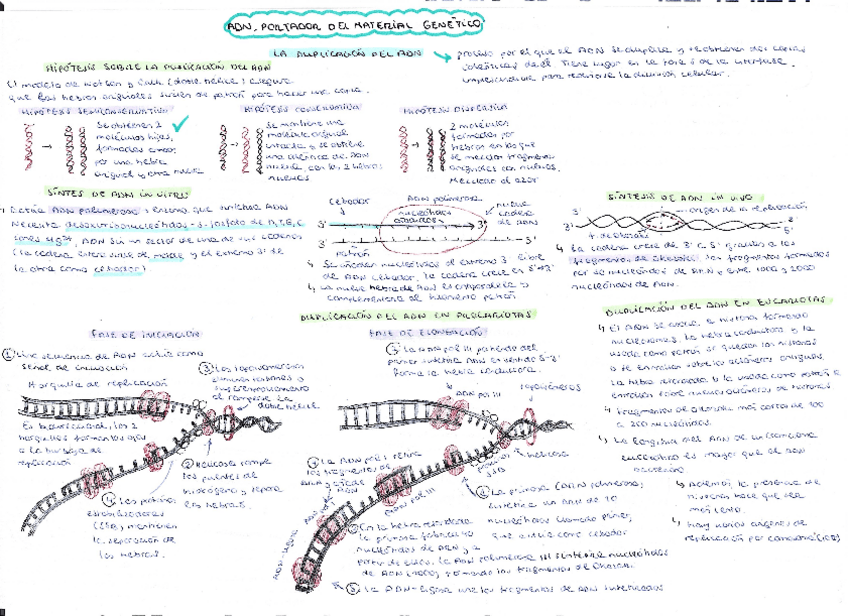 ADN, PORTADOR DEL MATERIAL GENÉTICO
LA DUPLICACIÓN DEL ADN
proceso por el que el ADN se duplica y se obtienen dos copias
idénticas de él. Tiene lugar en la fase S de la interfase,
imprescindible para la división celular.
HIPÓTESIS SOBRE LA DUPLICACIÓN DEL ADN
El modelo de Watson y Crick (doble hélice) sugiere
que las hebras originales sirven de patrón para hacer una copia.
HIPÓTESIS SEMICONSERVATIVA
Se obtienen 2
moléculas hijas,
formadas cada
por una hebra
original y otra nueva
HIPÓTESIS CONSERVATIVA
Se mantiene una
molécula original
intacta y se obtiene
una de ADN
nueva, con las 2 hebras
nuevas
HIPÓTESIS DISPERSIVA
2 moléculas
formadas por
hebras en las que
se mezclan fragmentos
originales con nuevos.
Mezclado al azar
SÍNTESIS DE ADN IN VITRO
ADN polimerasa, enzima que
Necesita desoxirribonucleótidos-5-fosfato de A,T,G,C
iones Mg2+, ADN
la otra como cebador)
Cebador
ADN polimerasa
nucleótidos
añadidos
nueva
cadena
de ADN
5'
3'
3'
5'
patrón
Se añaden nucleótidos al extremo 3' libre
de ADN cebador, la cadena crece en 5'→3'
La nueva hebra de ADN es antiparalela y
complementaria al patrón
SÍNTESIS DE ADN IN VIVO
origen de la replicación
f. de Okazaki
La cadena crece de 3' a 5' gracias a los
fragmentos de Okazaki: los fragmentos formados
por nucleótidos de ARN y entre 1000 y 2000
nucleótidos de ADN.
DUPLICACIÓN DEL ADN EN PROCARIOTAS
FASE DE INICIACIÓN
① Una secuencia de ADN actúa como
señal de iniciación
Horquilla de replicación
Es bidireccional, las 2
horquillas forman los ojos
o la burbuja de
replicación
③ Las topoisomerasas
eliminan tensiones y
al romperse la
doble hélice.
② Helicasa rompe
los puentes de
hidrógeno y separa
las hebras.
④ Las proteínas
estabilizadoras
(SSB) mantienen
la separación de
las hebras.
FASE DE ELONGACIÓN
La ADN pol III partiendo del
primer sintetiza ADN en sentido 5'-3'
forma la hebra conductora.
ADN pol III
topoisomerasa
helicasa
SSB
ADN pol III
La ADN pol I retira
los fragmentos de
ARN y añade
ADN
① La primasa (ARN polimerasa)
sintetiza un ARN de 10
nucleótidos llamado primer,
que actúa como cebador
En la hebra retardada
la primasa fabrica 10
nucleótidos de ARN y a
partir de ellos, la ADN polimerasa III sintetiza nucleótidos
de ADN (1000), formando los fragmentos de Okazaki.
⑤ La ADN-ligasa une los fragmentos de ADN sintetizados
DUPLICACIÓN DEL ADN EN EUCARIOTAS
El ADN se asocia a histonas formando
nucleosomas. La hebra conductora y la
usada como patrón se quedan las histonas
y se enrollan sobre los octámeros antiguos.
La hebra retardada y la usada como patrón se
enrollan sobre nuevos octámeros de histonas
Fragmentos de Okazaki más cortos de 100
a 200 nucleótidos.
La longitud del ADN de un cromosoma
eucariótico es mayor que el ADN
bacteriano
Además, la presencia de
histonas hace que sea
más lento.
Hay varios orígenes de
replicación por cromosoma